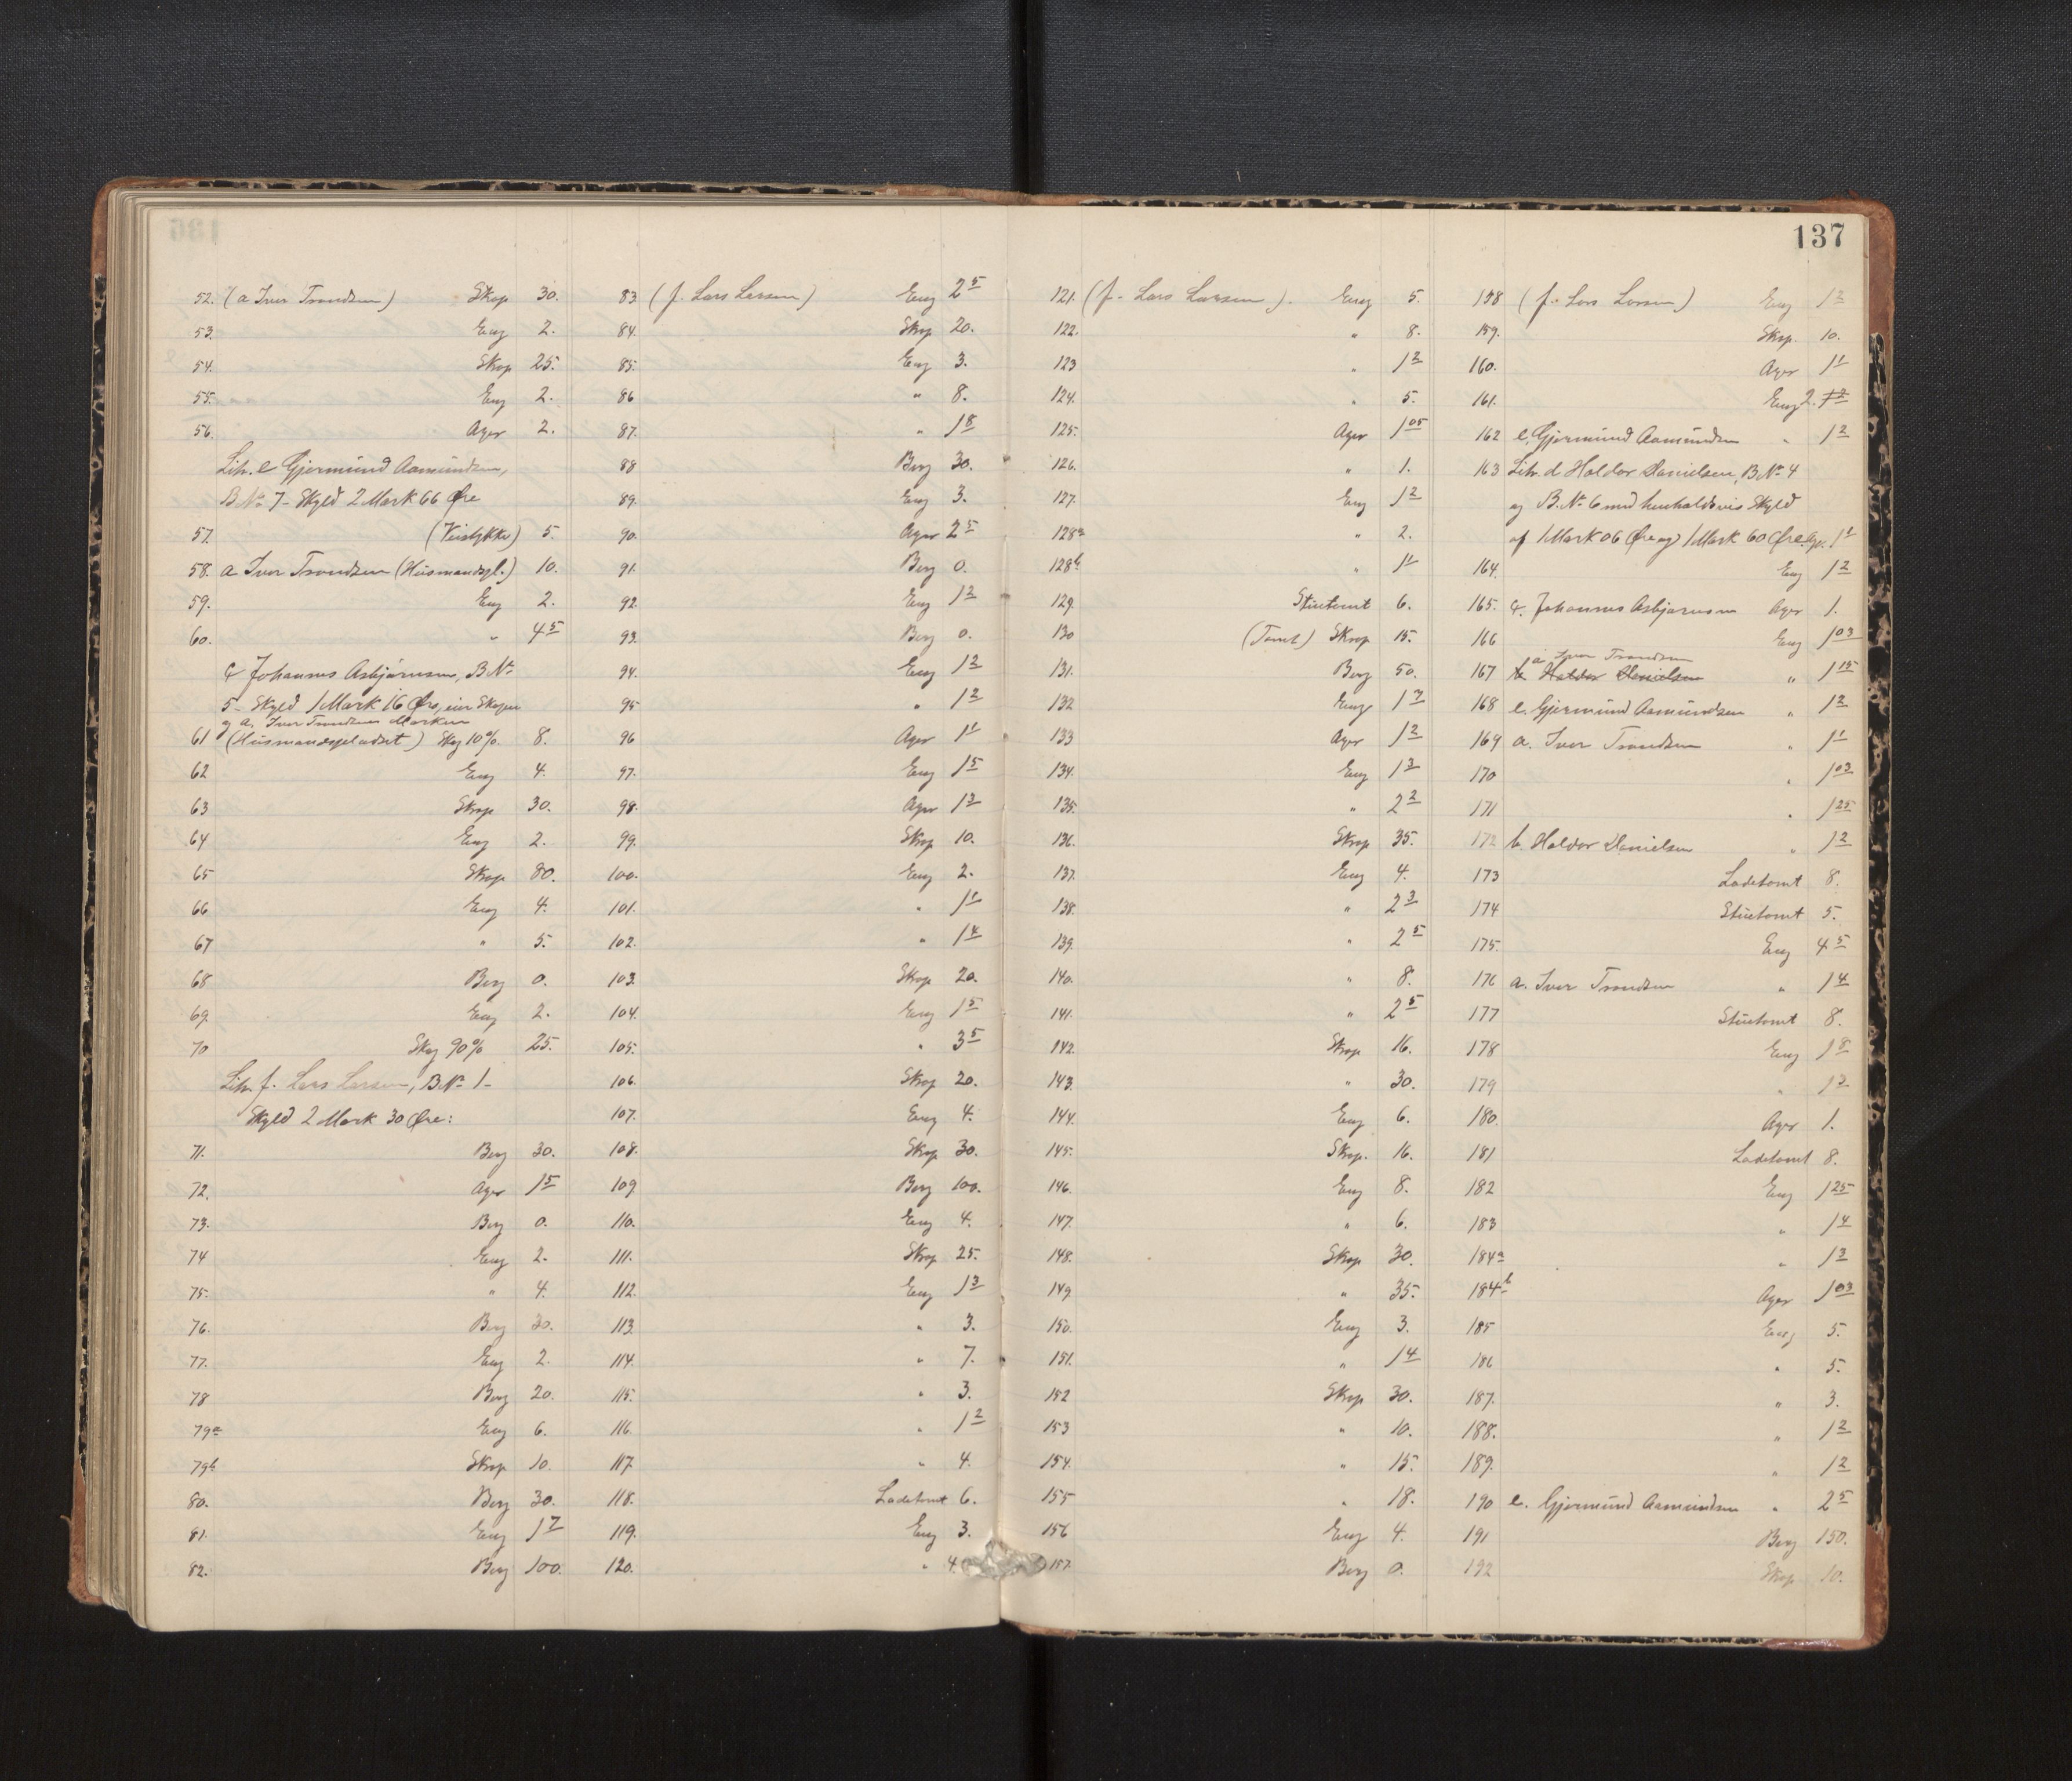 137
52. (a Iver Trondsen) Skog 30.
53. Eng 2.
54. Skog 25.
55. Eng 2.
56. Ager 2.
Litr. e Gjermund Aamundsen,
B. № 7 - Skyld 2 Mark 66 Øre
57. 5.
58. a Iver Trondsen (Husmandspl.) 10.
59. Eng 2.
60. " 4 5
c Johannes Asbjørnsen, B. №
5 - Skyld 1 Mark 16 Øre, eier Skogen
og a. Iver Trondsen Marken
61 (Husmandspladset) Skog 10% 8.
62 Eng 4.
63 Skog 30.
64 Eng 2.
65 Skog 80.
66 Eng 4.
67 " 5.
68 Berg 0.
69. Eng 2.
70 Skog 90% 25.
Litr. f. Lars Larsen, B. № 1 -
Skyld 2 Mark 30 Øre:
71. Berg 30.
72. Ager 1 5
73. Berg 0.
74 Eng 2.
75. " 4.
76. Berg 30.
77. Eng 2.
78 Berg 20.
79a Eng 6.
79b Skog 10.
80. Berg 30.
81. Eng 1 7
82. Berg 100.
83 (f. Lars Larsen) Eng 2 5
84. Skog 20.
85. Eng 3.
86 " 8.
87. " 1 8
88 Berg 30.
89. Eng 3.
90. Ager 2 5
91. Berg 0.
92. Eng 1 2
93. Berg 0.
94. Eng 1 2
95 " 1 2
96 Ager 1 1
97. Eng 1 5
98. Ager 1 2
99. Skog 10.
100. Eng 2.
101. " 1 1
102. " 1 4
103. Skog 20.
104. Eng 1 5
105. " 3 5
106. Skog 20.
107. Eng 4.
108. Skog 30.
109. Berg 100.
110. Eng 4.
111. Skog 25.
112. Eng 1 3
113. " 3.
114. " 7.
115. " 3.
116. " 1 2
117. " 4.
118. Ladetomt 6.
119. Eng 3.
120. " 4.
121. (f. Lars Larsen). Eng 5.
122. " 8.
123 " 1 2
124. " 5.
125. Ager 1 05
126. " 1.
127. Eng 1 2
128a " 2.
128b " 1 1
129. Stuetomt 6.
130 (Tomt) Skog 15.
131. Berg 50.
132 Eng 1 3
133 Ager 1 2
134. Eng 1 3
135. " 2 2
136. Skog 35.
137. Eng 4.
138. " 2 3
139. " 2 5
140. " 8.
141. " 2 5
142. Skog 16.
143. " 30.
144. Eng 6.
145. Skog. 16.
146. Eng 8.
147. " 6.
148. Skog 30.
149 " 35.
150. Eng 3.
151. " 1 4
152 Skog 30.
153 " 10.
154. " 15.
155 " 18.
156 Eng 4.
157. Berg 0.
158 (f. Lars Larsen) Eng 1 2
159. Skog. 10.
160. Ager 1 1
161. Eng 2. 1 2
162 e. Gjermund Aamundsen " 1 2
163 Litr. d Haldor Danielsen, B. № 4
og B. № 6 med henholdsvis Skyld
af 1 Mark 06 Øre og 1 Mark 60 Øre. Ager. 1 1
164. Eng 1 2
165. c. Johannes Asbjørnsen Ager 1.
166 Eng 1 03
a Iver Trondsen
167 b. Haldor Danielsen " 1 15
168 e. Gjermund Aamundsen " 1 2
169 a. Iver Trondsen " 1 1
170 " 1 03
171 " 1 25
172 b. Haldor Danielsen " 1 2
173 Ladetomt 8.
174 Stuetomt 5.
175. Eng 4 5
176 a. Iver Trondsen " 1 4
177 Stuetomt 8.
178 Eng 1 8
179 " 1 2
180. Ager 1.
181 Ladetomt 8.
182 Eng 1 25
183 " 1 4
184a " 1 3
184b Ager 1 03
185 Eng 5.
186 " 5.
187. " 3.
188. " 1 2
189. " 1 2
190 e. Gjermund Aamundsen " 2 5
191 Berg 150.
192 Skog 10.